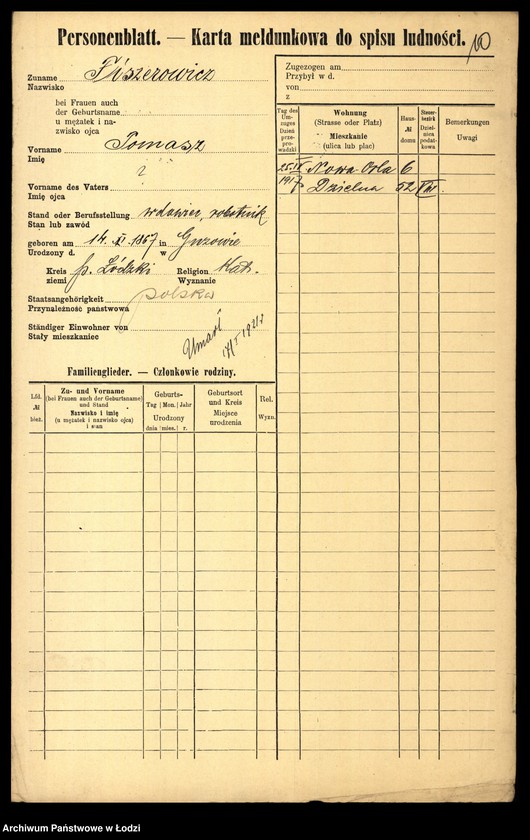 Personenblatt. — Karta meldunkowa do spisu ludności.
10
Zuname Fiszerowicz
Nazwisko
bei Frauen auch
der Geburtsname
u mężatek i na-
zwisko ojca
Vorname Tomasz
Imię
?
Vorname des Vaters
Imię ojca
Stand oder Berufsstellung wdowiec, robotnik
Stan lub zawód
geboren am 14. XI. 1867 in Guzowie
Urodzony d. w
Kreis p. Łódzki Religion Kat.
ziemi Wyznanie
Staatsangehörigkeit polska
Przynależność państwowa
Ständiger Einwohner von
Stały mieszkaniec
Umarł
1921 r
Familienglieder. — Członkowie rodziny.
Lfd. № bież.
Zu- und Vorname
(bei Frauen auch der Geburtsname)
und Stand
Nazwisko i imię
(u mężatek i nazwisko ojca)
i stan
Geburts-
Tag Mon. Jahr
Urodzony
dnia mies. r.
Geburtsort
und Kreis
Miejsce
urodzenia
Rel.
Wyzn.
Zugezogen am
Przybył w d.
von
z
Tag des
Um-
zuges
Dzień
prze-
prowadzki
Wohnung
(Strasse oder Platz)
Mieszkanie
(ulica lub plac)
Haus-
№
domu
Steuer-
bezirk
Dziel-
nica
podat-
kowa
Bemerkungen
Uwagi
25. IV Nowa Orla 6
1917 Dzielna 52 VII
Archiwum Państwowe w Łodzi